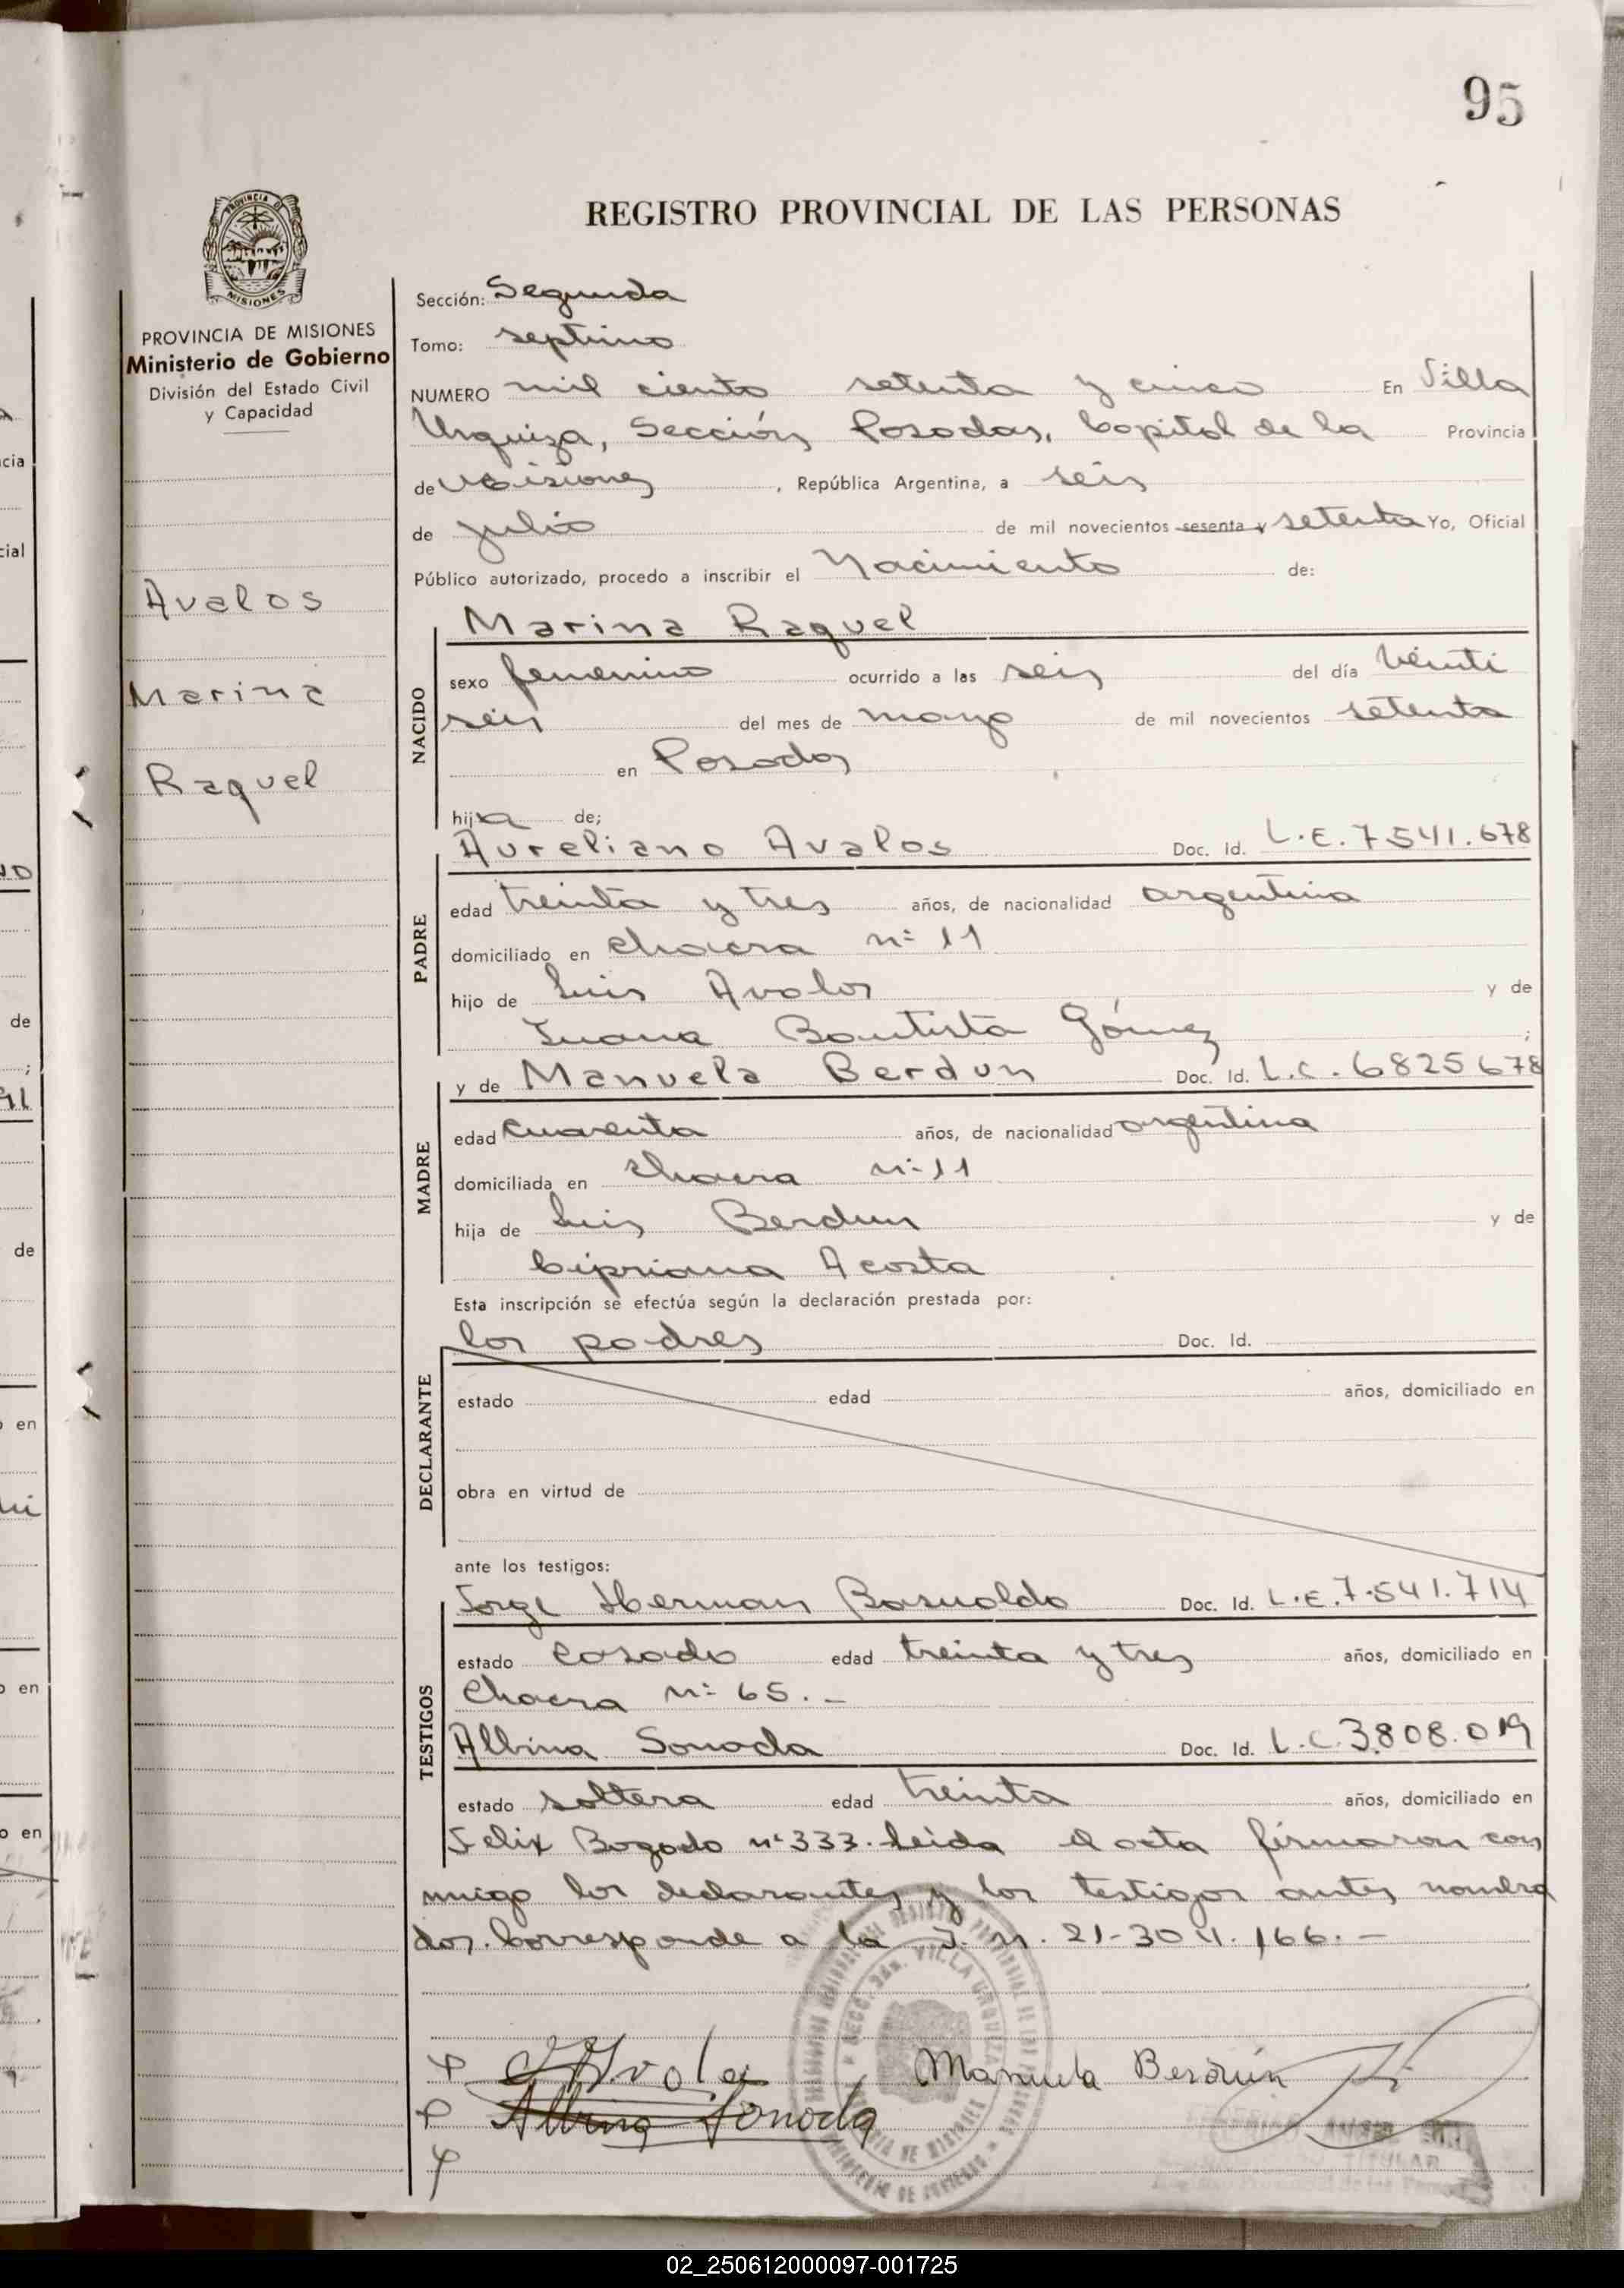 95
REGISTRO PROVINCIAL DE LAS PERSONAS
PROVINCIA DE MISIONES
Ministerio de Gobierno
División del Estado Civil
y Capacidad
Avalos
Marina
Raquel
Sección: Segunda
Tomo: septimo
NUMERO mil ciento setenta y cinco En Villa
Urquiza, Sección Posadas, Capital de la Provincia
de Misiones, República Argentina, a seis
de julio de mil novecientos sesenta y setenta Yo, Oficial
Público autorizado, procedo a inscribir el Nacimiento de:
Marina Raquel
NACIDO
sexo femenino ocurrido a las seis del día veinti
seis del mes de mayo de mil novecientos setenta
en Posadas
hija de;
Aureliano Avalos Doc. id. L.E. 7.541.678
PADRE
edad treinta y tres años, de nacionalidad argentina
domiciliado en chacra nº 11
hijo de Luis Avalos y de
Juana Bautista Gómez ;
y de Manuela Berdun Doc. Id. L.C. 6825678
MADRE
edad cuarenta años, de nacionalidad argentina
domiciliada en chacra nº 11
hija de Luis Berdun y de
Cipriana Acosta
Esta inscripción se efectúa según la declaración prestada por:
los padres Doc. Id.
DECLARANTE
estado edad años, domiciliado en
obra en virtud de
ante los testigos:
Jorge Herman Basualdo Doc. Id. L.E. 7.541.714
TESTIGOS
estado casado edad treinta y tres años, domiciliado en
Chacra nº 65. -
Albina Sonoda Doc. Id. L.C. 3.808.019
estado soltera edad treinta años, domiciliado en
Felix Bogado nº 333. Leida el acta firmaron con
migo los declarantes y los testigos antes nombra
dos. Corresponde a la I. n. 21-30 11.166. -
Manuela Berdún
Albina Sonoda
02_250612000097-001725